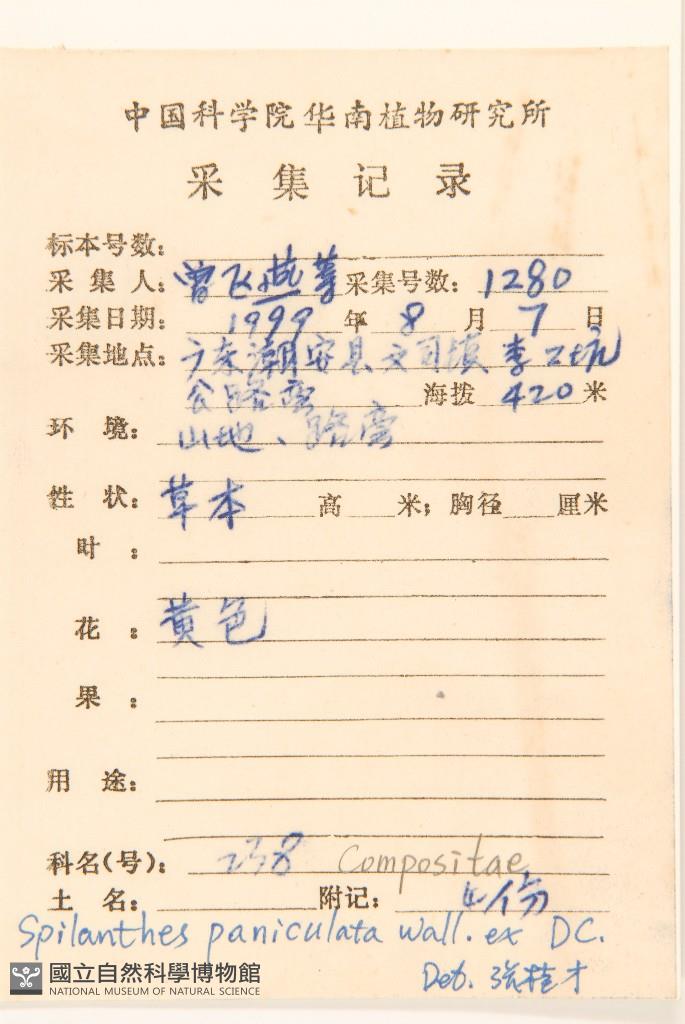 中国科学院华南植物研究所
采集记录
标本号数:
采集人: 曾飞燕等 采集号数: 1280
采集日期: 1999 年 8 月 7 日
采集地点: 广东潮安县文司镇李工坑
公路旁 海拨 420 米
环境: 山地、路旁
性状: 草本 高 米; 胸径 厘米
叶:
花: 黄色
果:
用途:
科名(号): 238 Compositae
土名: 附记: 4份
Spilanthes paniculata wall. ex DC.
Det. 张桂才
國立自然科學博物館
NATIONAL MUSEUM OF NATURAL SCIENCE